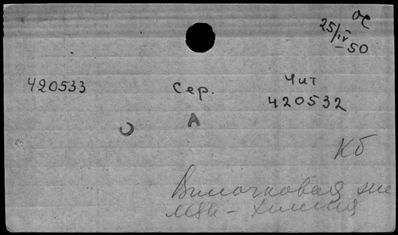 ОС
25/IV-50
420533 Сер. Чит
420532
А
Кб
Вилочковая же
- химия